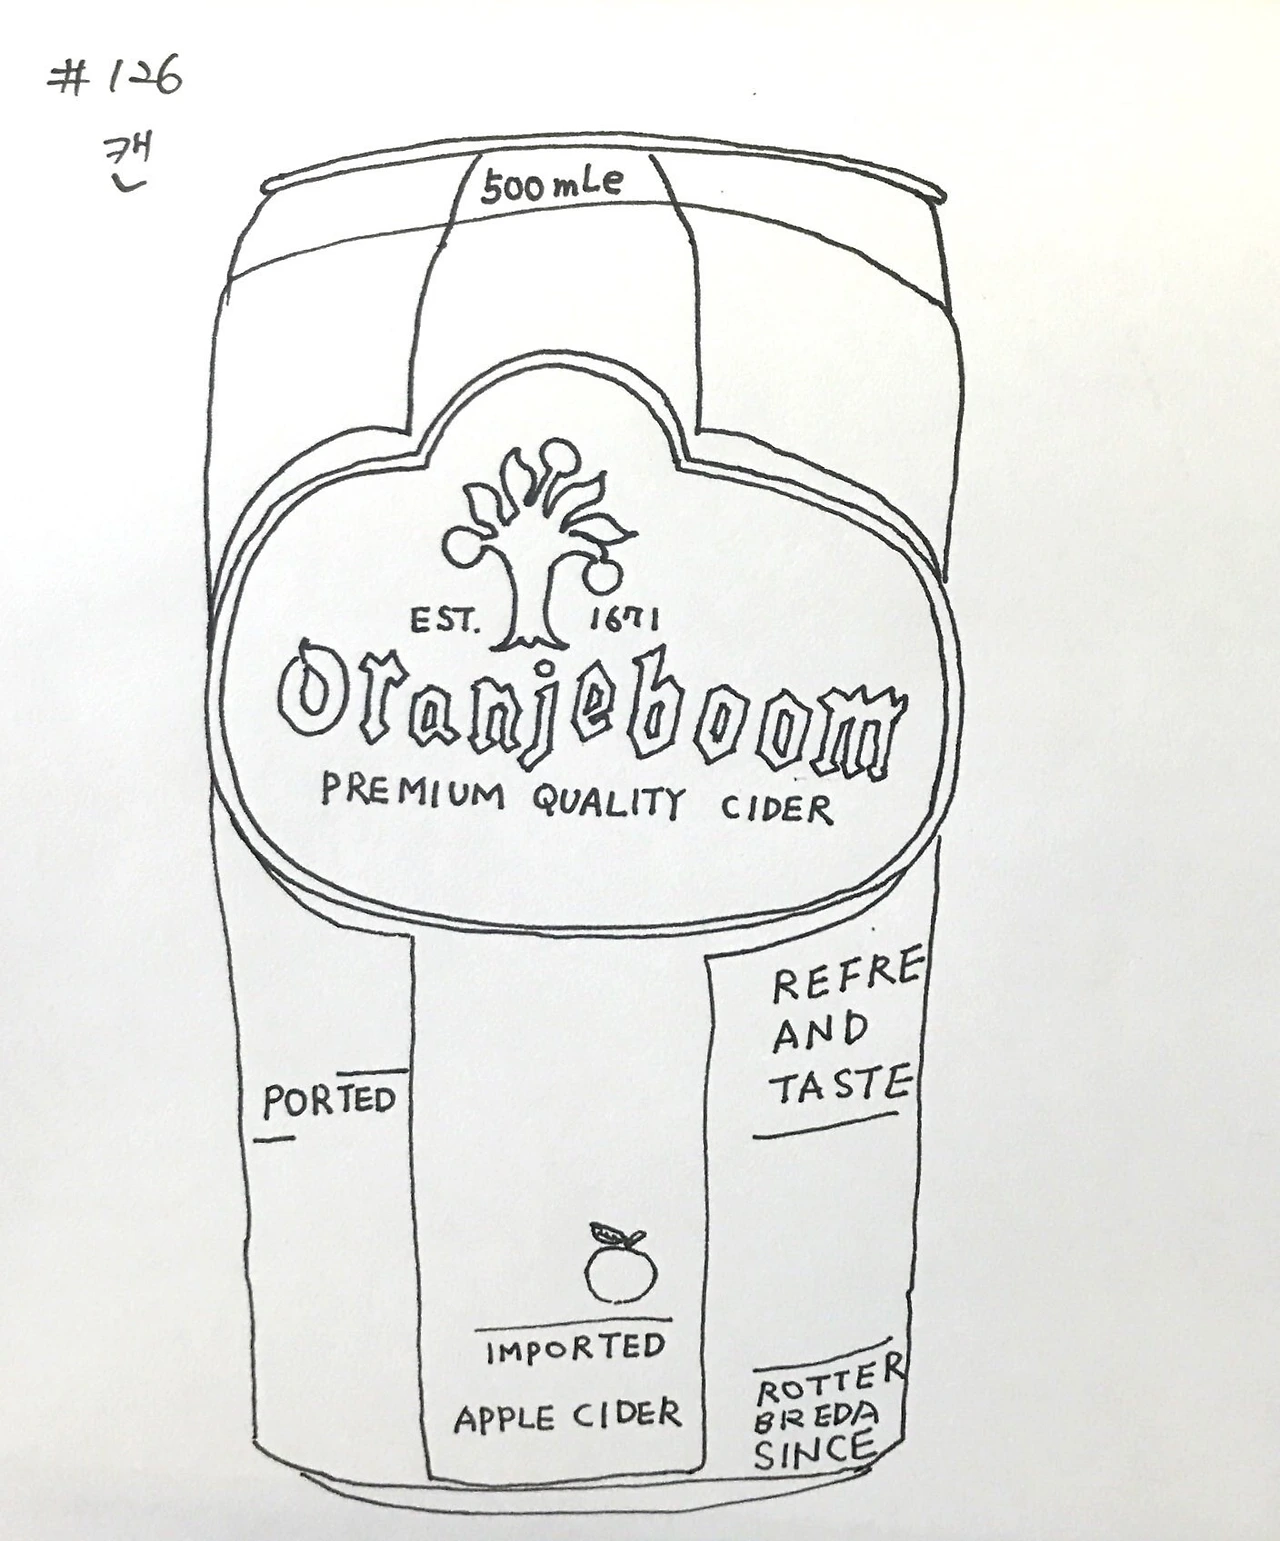 # 126
캔
500mLe
EST. 1671
Oranjeboom
PREMIUM QUALITY CIDER
REFRE
AND
TASTE
PORTED
IMPORTED
APPLE CIDER
ROTTER
BREDA
SINCE